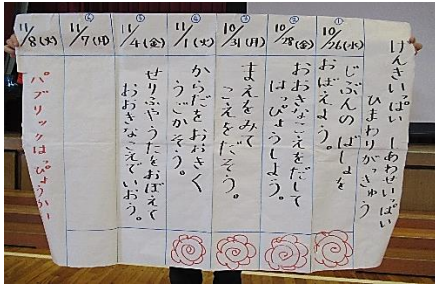 げんきいっぱい しあわせいっぱい
ひまわりがっきゅう
①
10/26(水)
じぶんのばしょを
おぼえよう。
②
10/28(金)
おおきなこえをだして
はっぴょうしよう。
③
10/31(月)
まえをみて
こえをだそう。
④
11/1(火)
からだをおおきく
うごかそう。
⑤
11/4(金)
せりふやうたをおぼえて
おおきなこえでいおう。
⑥
11/7(月)
11/8(火)
パブリックはっぴょうかい